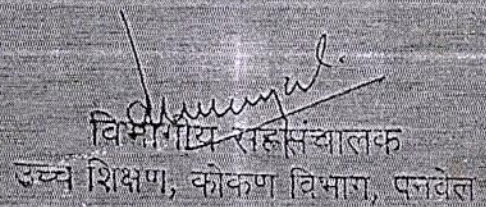 विभागीय सहसंचालक
उच्च शिक्षण, कोकण विभाग, पनवेल